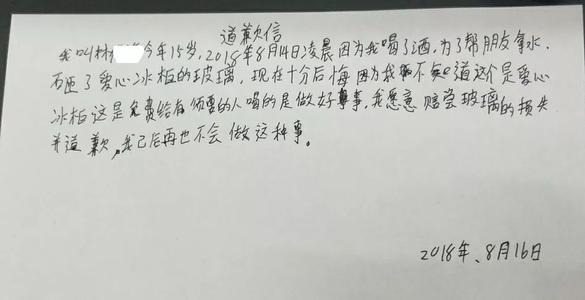 道歉信
我叫林 今年15岁,2018年8月14日凌晨因为我喝了酒,为了帮朋友拿水.
石砸了爱心冰柜的玻璃,现在十分后悔因为我不知道这个是爱心
冰柜这是免费给有须要的人喝的是做好事,我愿意赔尝玻璃的损失
并道歉,我已后再也不会做这种事。
2018年、8月16日